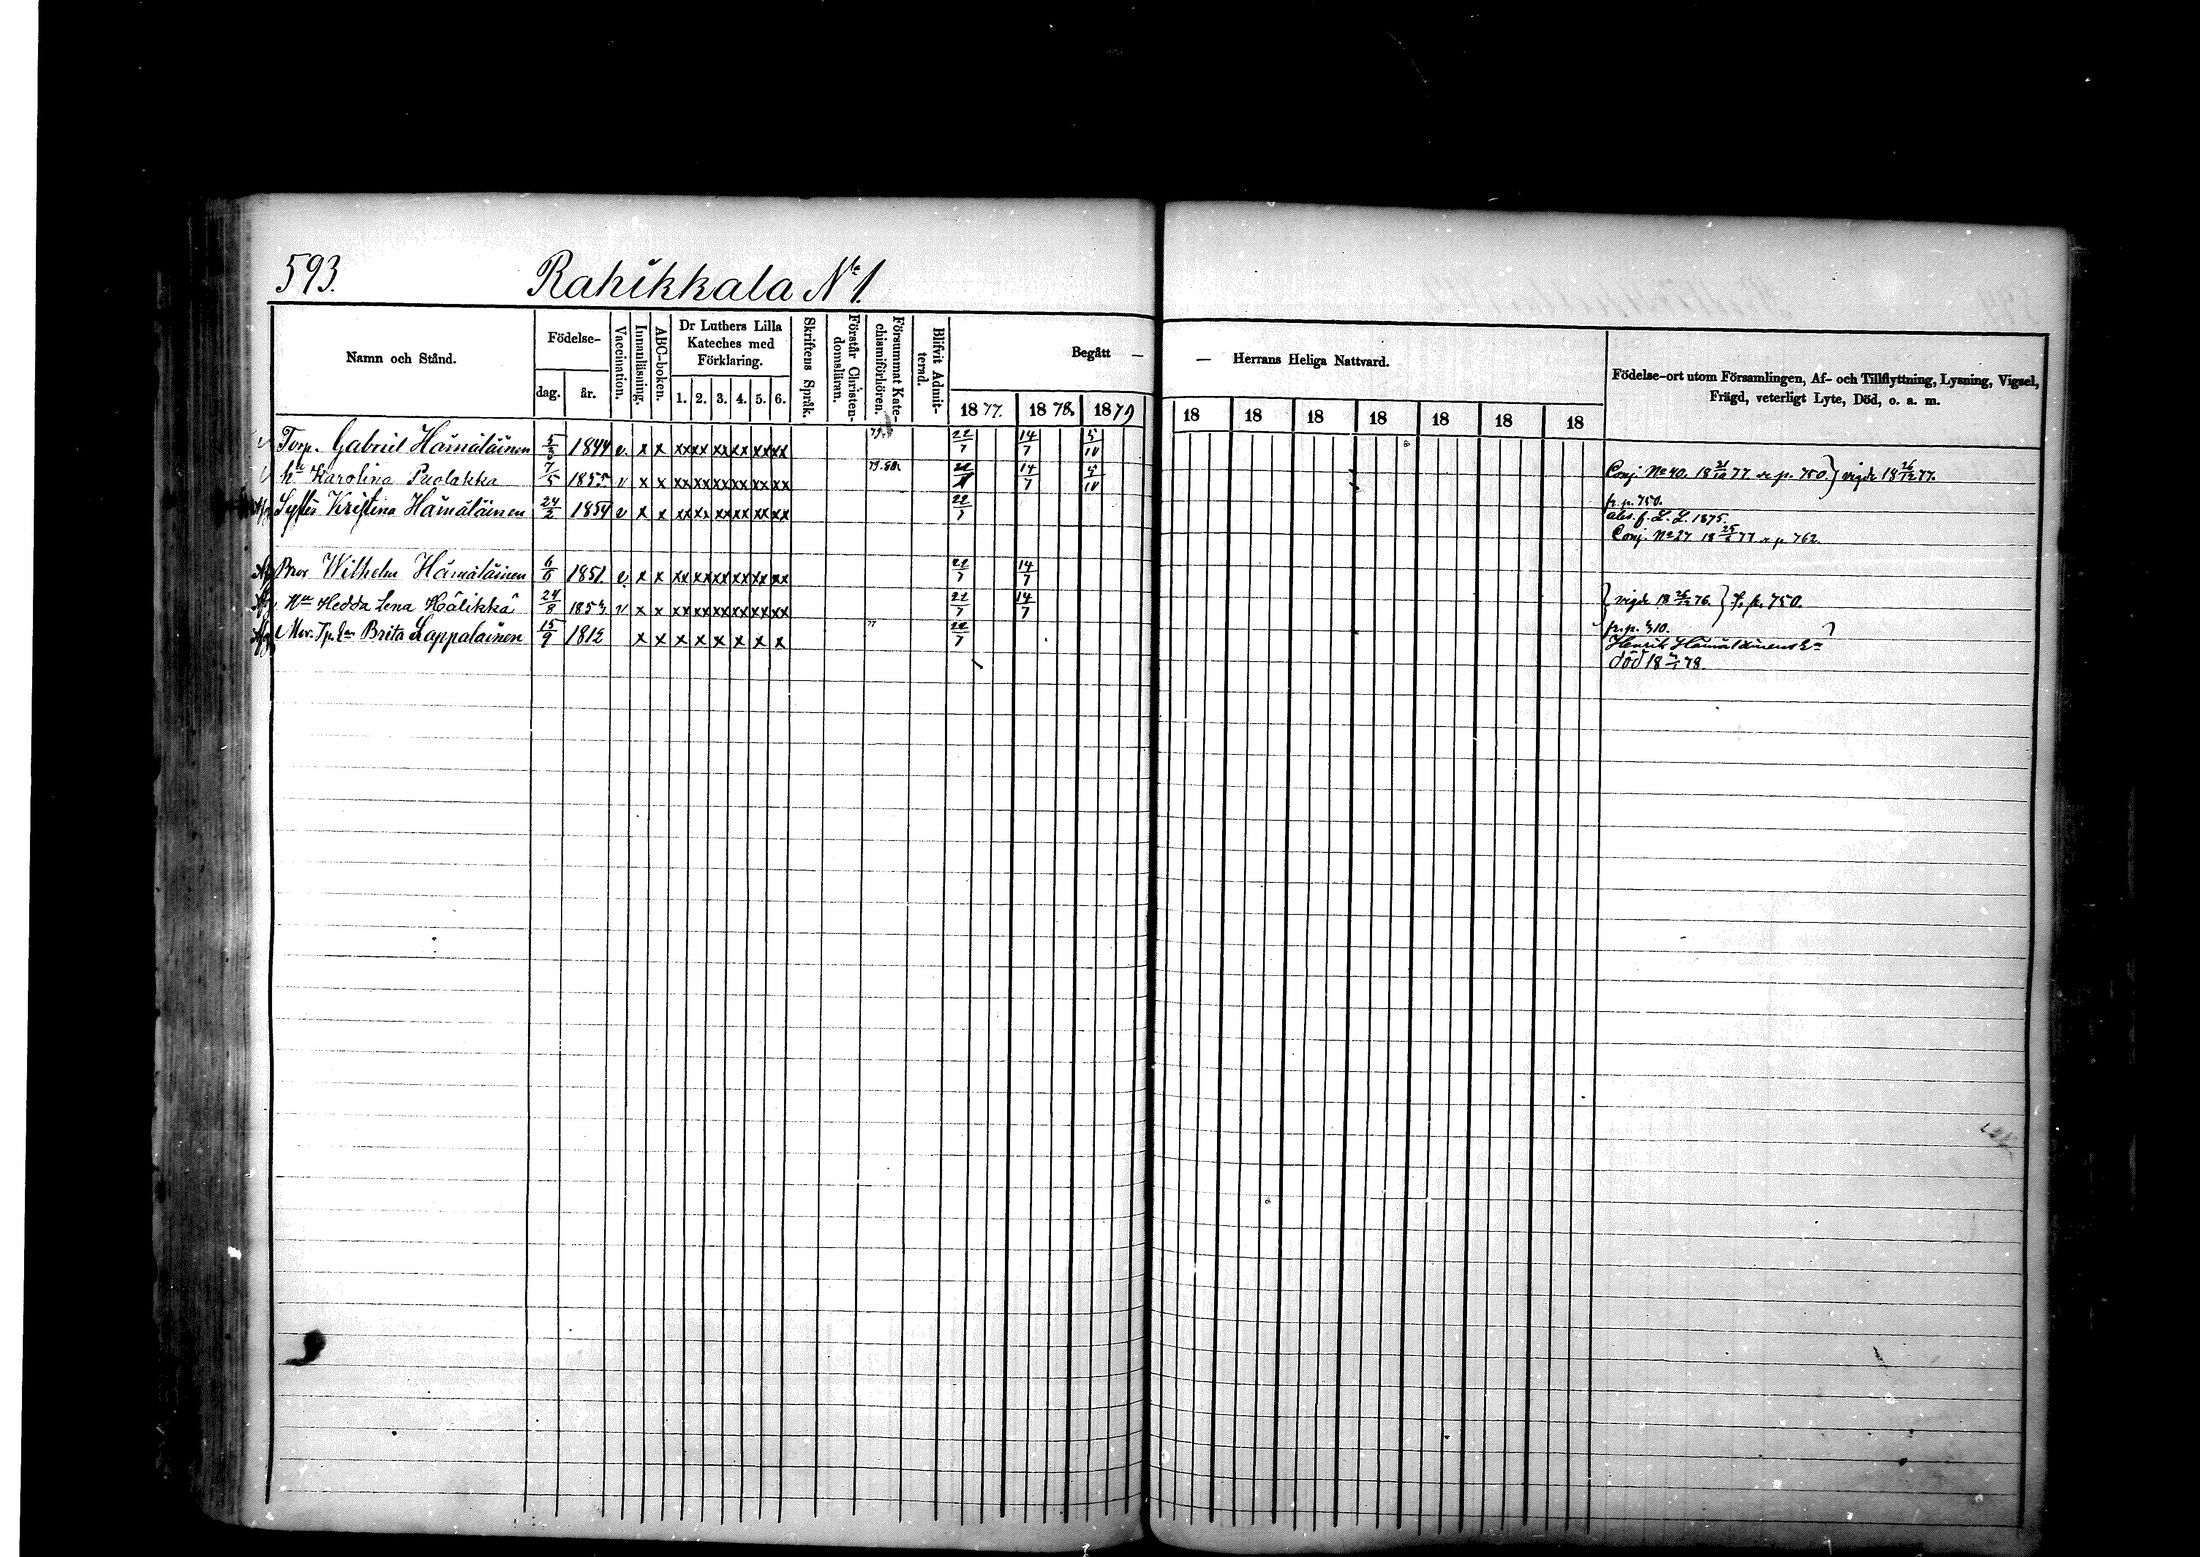 593. Rahikkala No 1.
Namn och Stånd. Födelse- dag. år. Vaccination. Innanläsning. ABC-boken. Dr Luthers Lilla Kateches med Förklaring. 1. 2. 3. 4. 5. 6. Skriftens Språk. Förstår Christendomsläran. Försummat Katechismiförhören. Blifvit Admitterad. Begått — — Herrans Heliga Nattvard. Födelse-ort utom Församlingen, Af- och Tillflyttning, Lysning, Vigsel, Frägd, veterligt Lyte, Död, o. a. m.
1877. 1878. 1879 18 18 18 18 18 18 18
Torp. Gabriel Hämäläinen 5/3 1844 v. x x xx xx xx xx xx xx 79. 22/7 14/7 5/10
hu Karolina Puolakka 7/5 1855 v x x xx xx xx xx xx xx 79. 80. 14/7 5/10 Conj. No 40. 18 21/10 77 p. 750. } vigde 18 26/12 77.
Syster Kristina Hämäläinen 24/2 1854 v x x xx xx xx xx xx xx 22/7 fr. p. 750.
abs. f. L. L. 1875.
Conj. No 27 18 77 p 762.
Bror Wilhelm Hämäläinen 6/6 1851. v. x x xx xx xx xx xx xx 22/7 14/7
Hu Hedda Lena Hälikkä 24/8 1853 v x x xx xx xx xx xx xx 22/7 14/7 } vigde 18 26/12 76. } p. 750.
Mor. Tp. Ea Brita Lappalainen 15/9 1812 x x x x x x x x " 22/7 fr. p. 310.
Henrik Hämäläinens Ea
död 18 78.